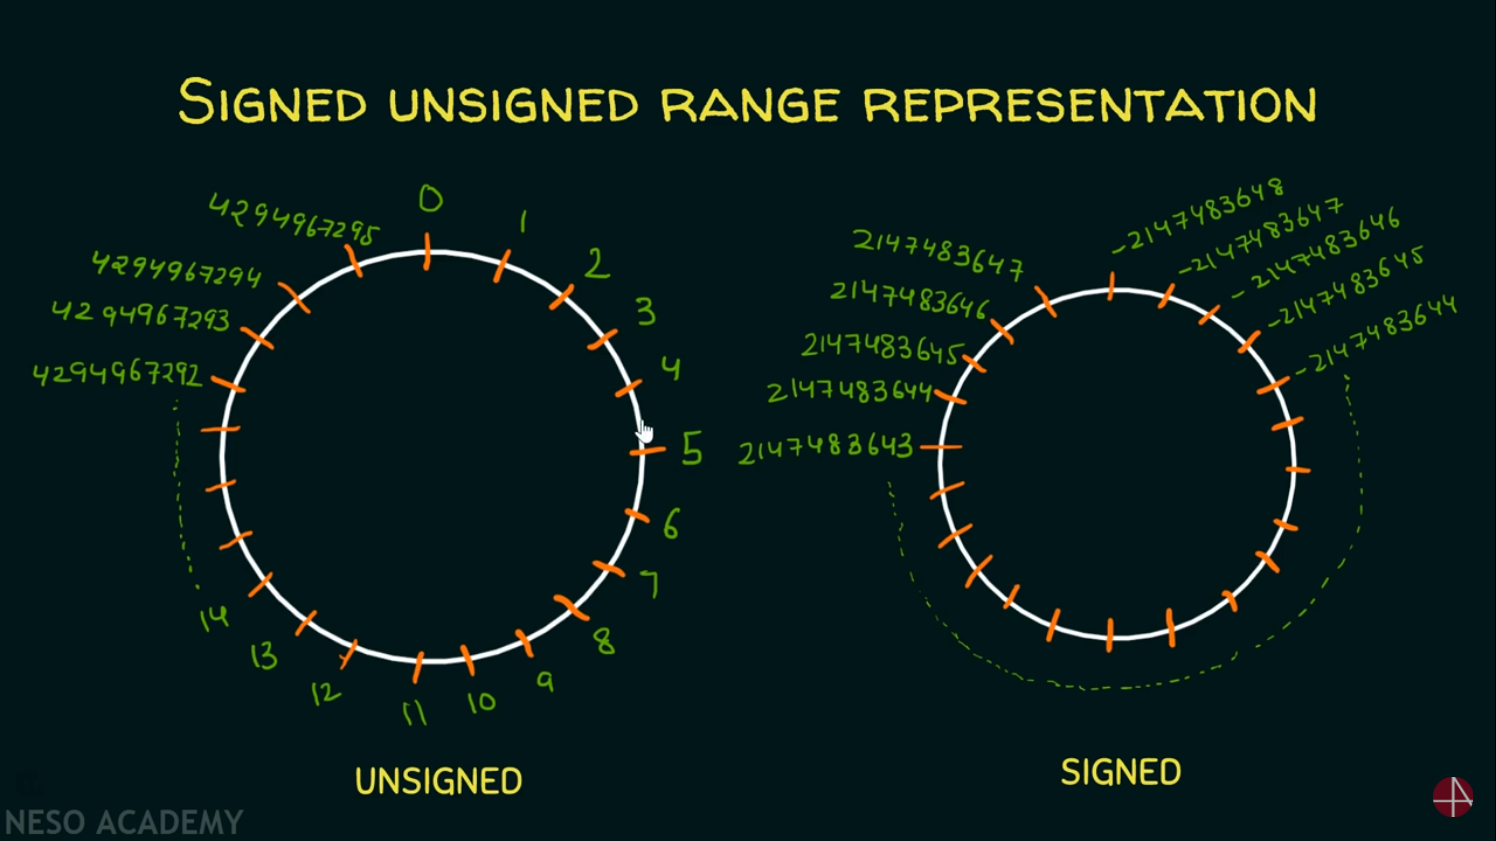 SIGNED UNSIGNED RANGE REPRESENTATION
0
1
2
3
4
5
6
7
8
9
10
11
12
13
14
4294967292
4294967293
4294967294
4294967295
UNSIGNED
-2147483648
-2147483647
-2147483646
-2147483645
-2147483644
2147483647
2147483646
2147483645
2147483644
2147483643
SIGNED
NESO ACADEMY